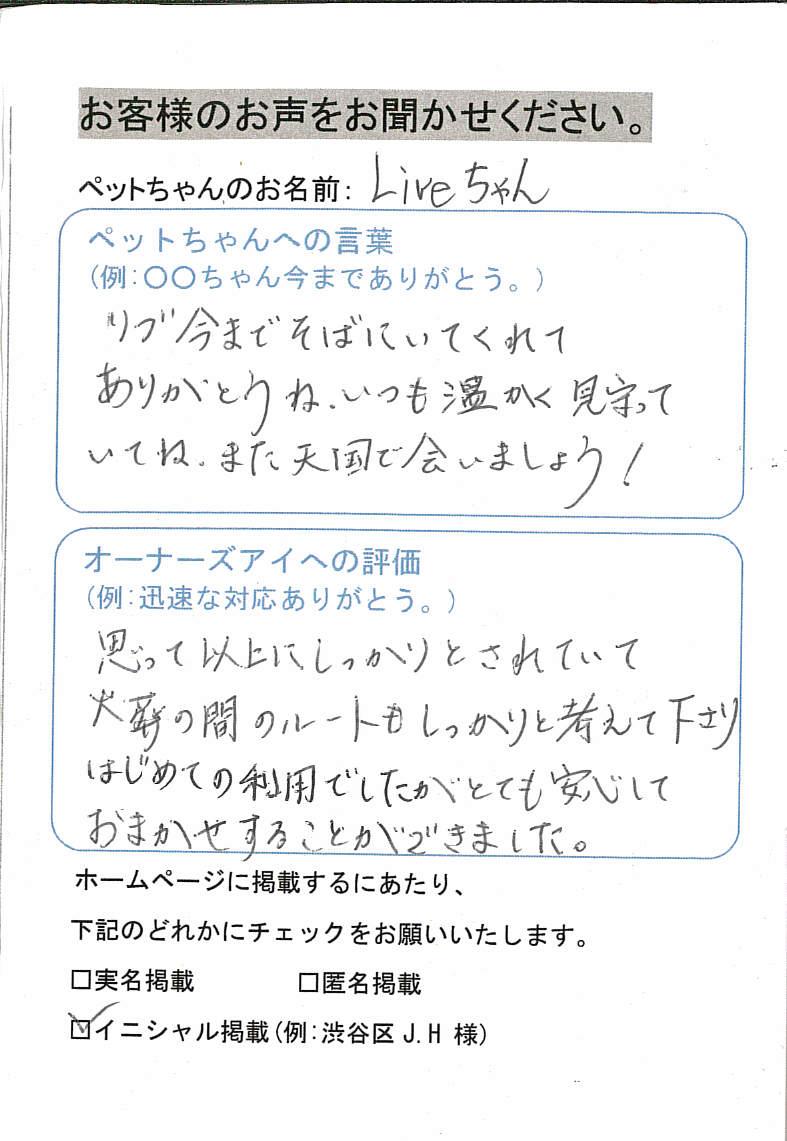 お客様のお声をお聞かせください。
ペットちゃんのお名前: Liveちゃん
ペットちゃんへの言葉
(例:〇〇ちゃん今までありがとう。)
リブ今までそばにいてくれて
ありがとうね、いつも温かく見守って
いてね、また天国で会いましょう!
オーナーズアイへの評価
(例:迅速な対応ありがとう。)
思って以上にしっかりとされていて
火葬の間のルートもしっかりと考えて下さり
はじめての利用でしたがとても安心して
おまかせすることができました。
ホームページに掲載するにあたり、
下記のどれかにチェックをお願いいたします。
□実名掲載 □匿名掲載
☑イニシャル掲載(例:渋谷区 J.H 様)